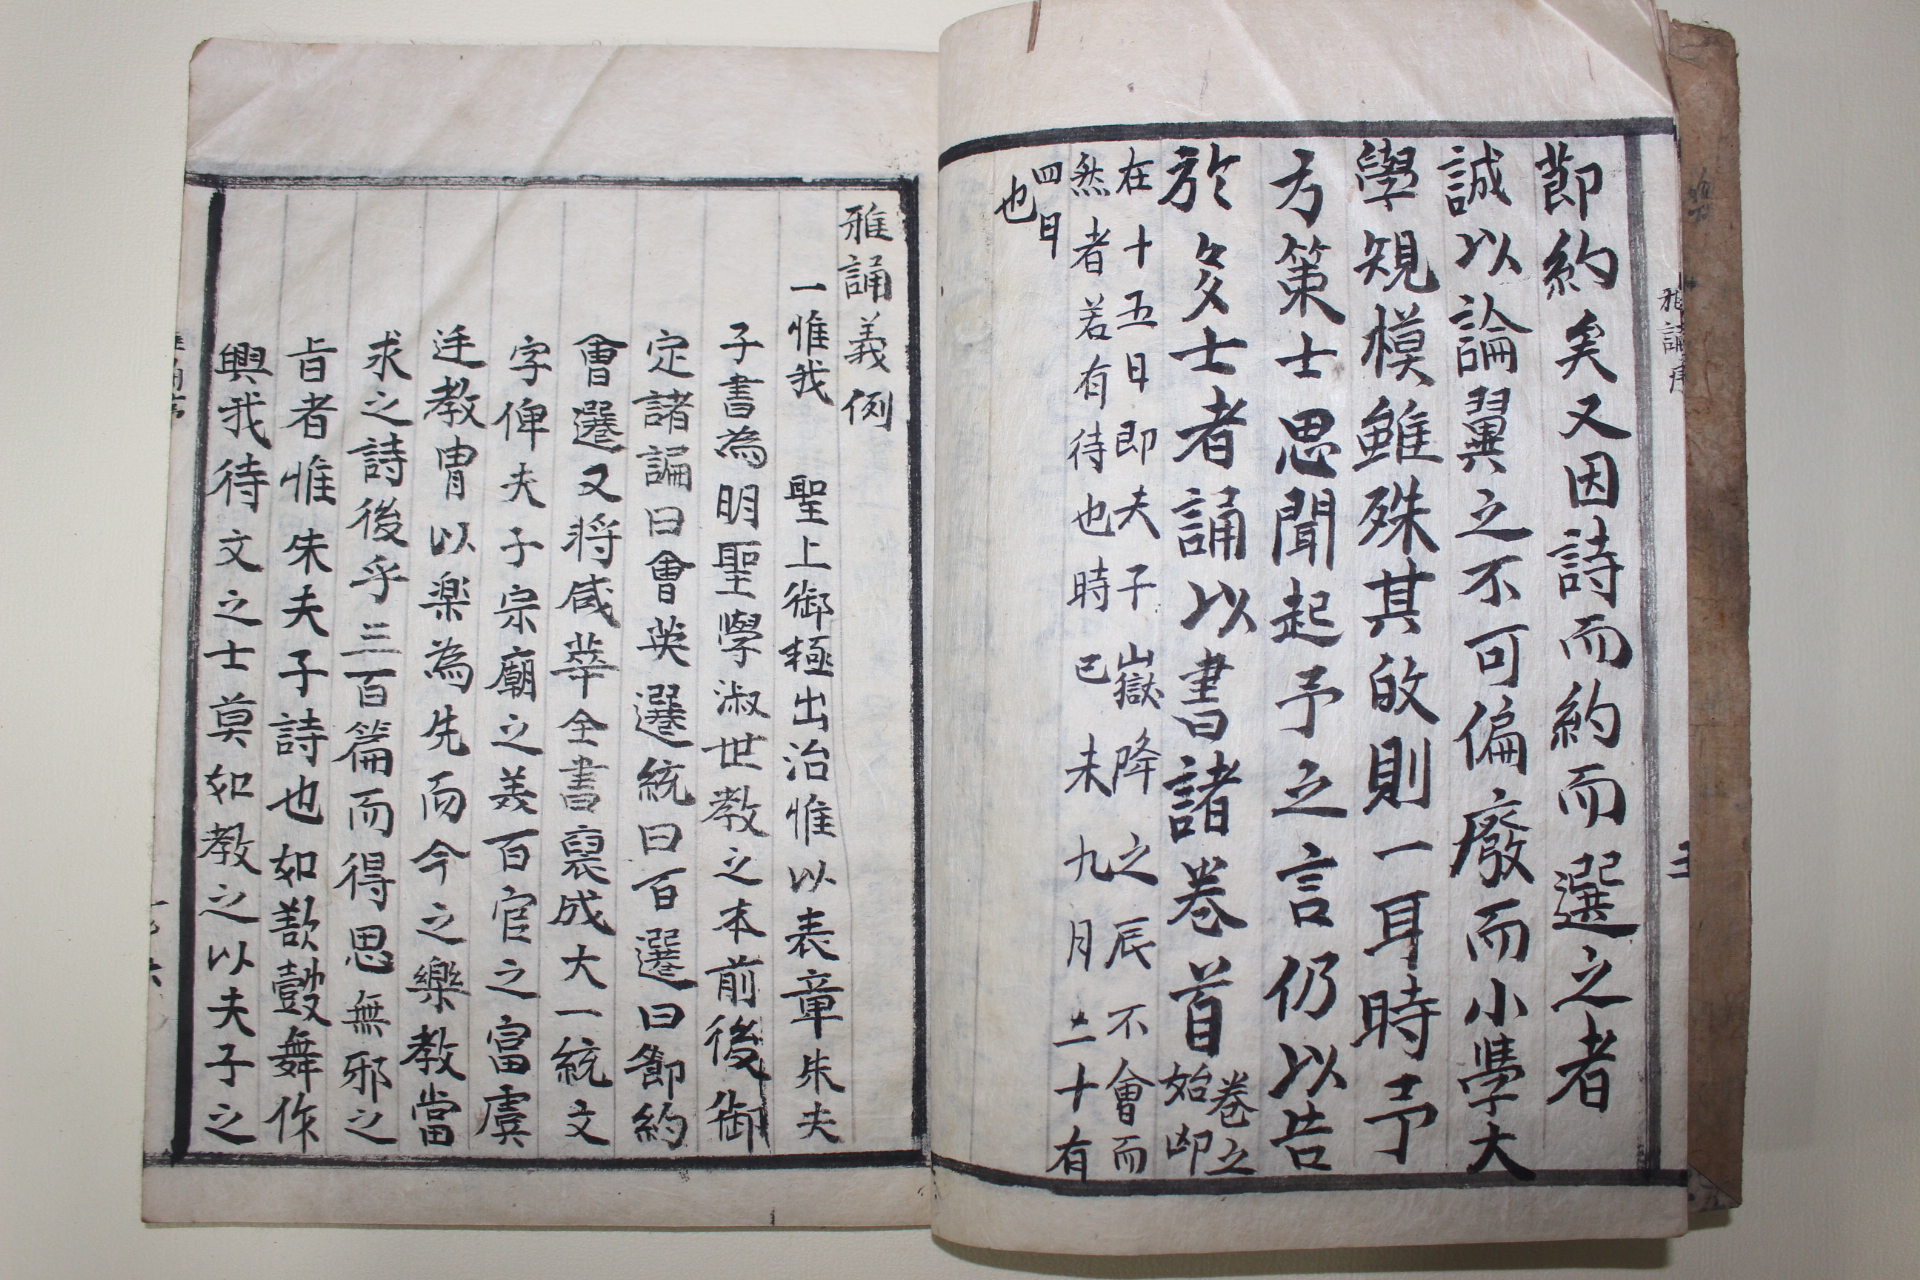 雅誦序
節約矣又因詩而約而選之者
誠以論翼之不可偏廢而小學大
學規模雖殊其敀則一耳時予
方策士思聞起予之言仍以告
於多士者誦以書諸卷首
卷之
始邮
在十五日即夫子嶽降之辰不會而
然者若有待也時己未九月二十有
四日
也
雅誦義例
一惟我 聖上御極出治惟以表章朱夫
子書為明聖學淑世教之本前後御
定諸編曰會英選統曰百選曰節約
會選又將咸萃全書裒成大一統文
字俾夫子宗廟之美百官之富虞
廷教胄以楽為先而今之樂教當
求之詩後乎三百篇而得思無邪之
旨者惟朱夫子詩也如歎鼓舞作
興我待文之士莫如教之以夫子之